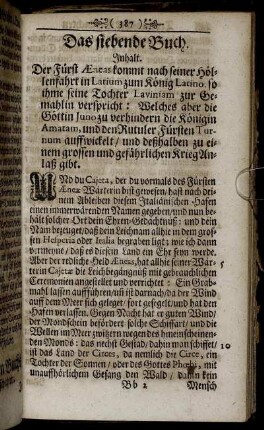 ( 387 )
Das siebende Buch.
Inhalt.
Der Fürst Æneas kommt nach seiner Höl-
lenfahrt in Latium zum König Latino, so
ihme seine Tochter Laviniam zur Ge-
mahlin verspricht: Welches aber die
Göttin Juno zu verhindern die Königin
Amatam, und den Rutuler Fürsten Tur-
num auffwickelt / und deßhalben zu ei-
nem grossen und gefährlichen Krieg An-
laß gibt.
UNd du Cajeta, der du vormals des Fürsten
Æneæ Wärterin bist gewesen, hast nach dei-
nem Ableiben diesem Italiänischen Hafen
einen immerwärenden Namen gegeben/ und nun be-
hält solcher Ort dein Ehren-Gedächtnuß: und dein
Nam bezeuget/ daß dein Leichnam allhie in dem gros-
sen Hesperia oder Italia begraben ligt: wie ich dann
vermeine/ daß es diesem Land ein Ehr seyn werde.
Aber der redliche Held Æneas, hat allhie seiner Wär- 5
terin Cajetæ die Leichbegängnuß mit gebräuchlichen
Ceremonien angestellet und verrichtet: Ein Grab-
mahl lassen auffführen/ und ist darnach/ da der Wind
auff dem Meer sich geleget/ fort gesegelt/ und hat den
Hafen verlassen. Gegen Nacht hat er guten Wind/
der Mondschein befördert solche Schiffart/ und die
Wellen im Meer zwitzern wegen des hineinscheinen-
den Monds: das nechst Gestad/ dahin man schiffet/ 10
ist das Land der Circes, da nemlich die Circe, ein
Tochter der Sonnen / oder des Gottes Phœbi, mit
unauffhörlichem Gesang den Wald / dahin kein
Bb 2 Mensch